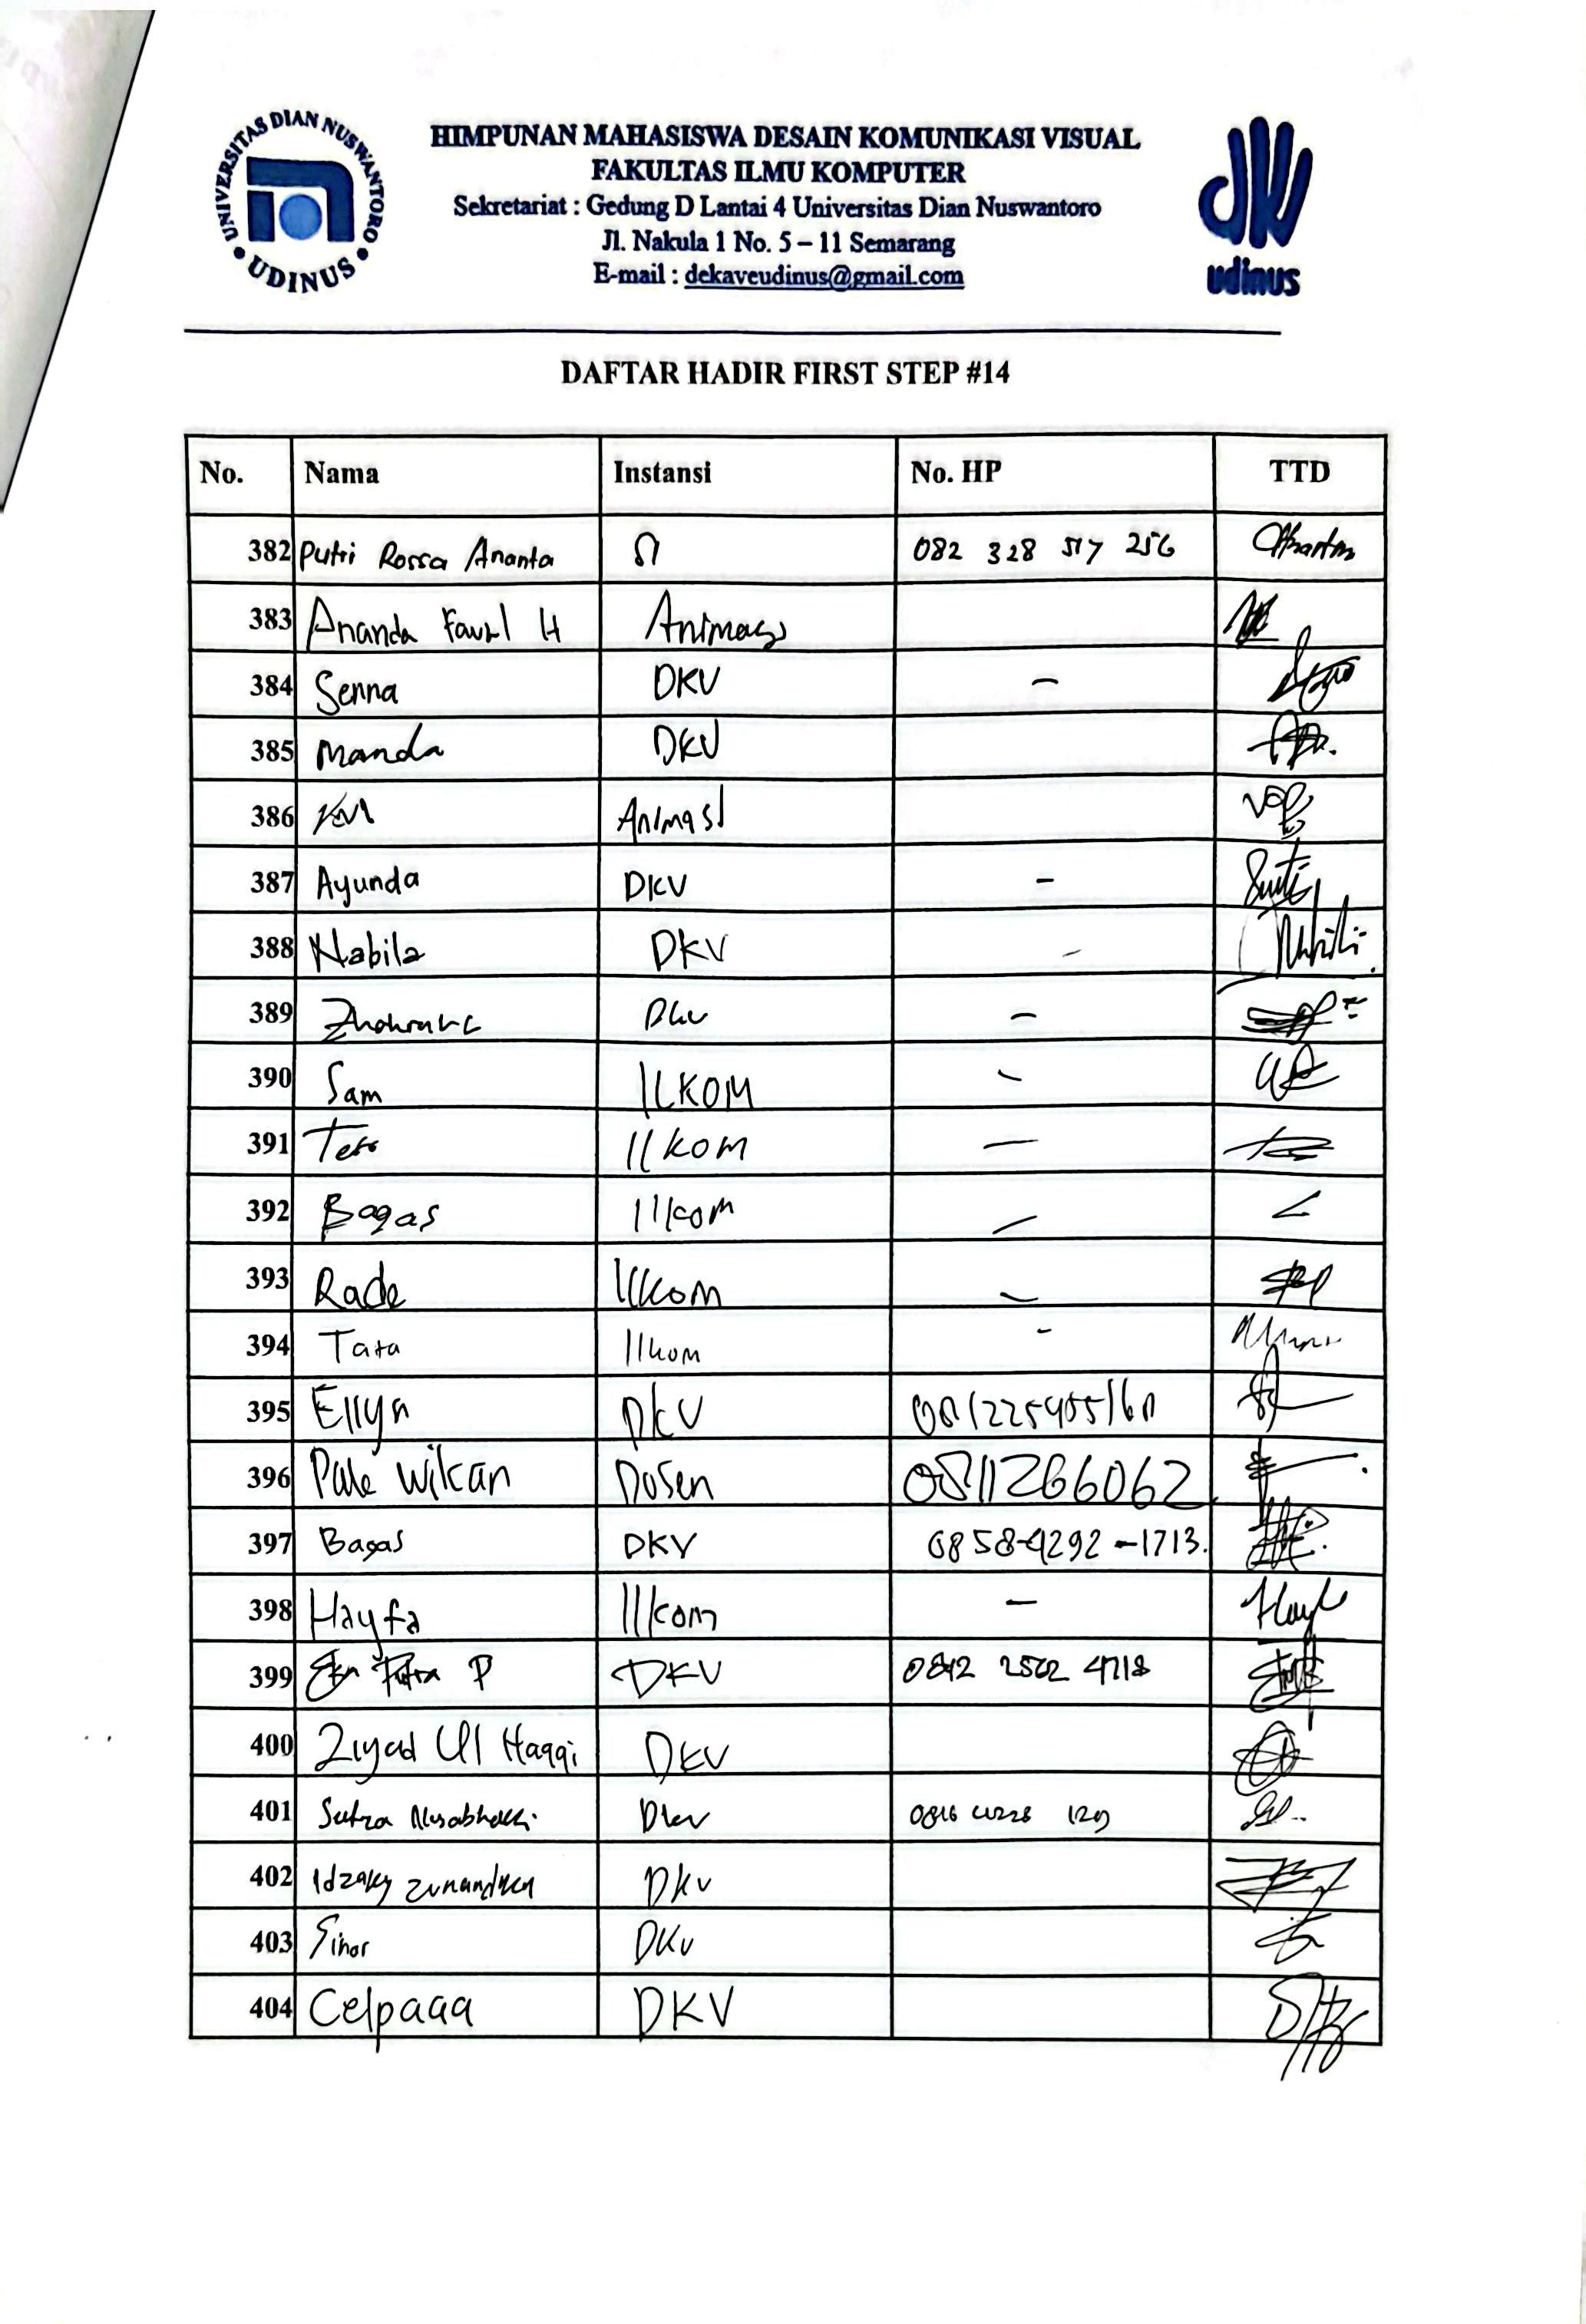 UNIVERSITAS DIAN NUSWANTORO
UDINUS
HIMPUNAN MAHASISWA DESAIN KOMUNIKASI VISUAL
FAKULTAS ILMU KOMPUTER
Sekretariat : Gedung D Lantai 4 Universitas Dian Nuswantoro
Jl. Nakula 1 No. 5 – 11 Semarang
E-mail : dekaveudinus@gmail.com
dkv
udinus
DAFTAR HADIR FIRST STEP #14
No. Nama Instansi No. HP TTD
382 Putri Rossa Ananta SI 082 328 517 256
383 Ananda Fauzl H Animasi
384 Senna DKV –
385 Manda DKV
386 Animasi
387 Ayunda DKV –
388 Nabila DKV –
389 DKV –
390 Sam ILKOM –
391 Ilkom –
392 Bagas Ilkom –
393 Rade Ilkom –
394 Tata Ilkom -
395 Ellyn DKV
396 Wikan Dosen 0811266062
397 Bagas DKV 0858-4292-1713.
398 Hayfa Ilkom –
399 Putra P DKV
400 Ziyad Ul Haqqi DKV
401 Dkv
402 Idzaky Dkv
403 DKV
404 Celpaaa DKV